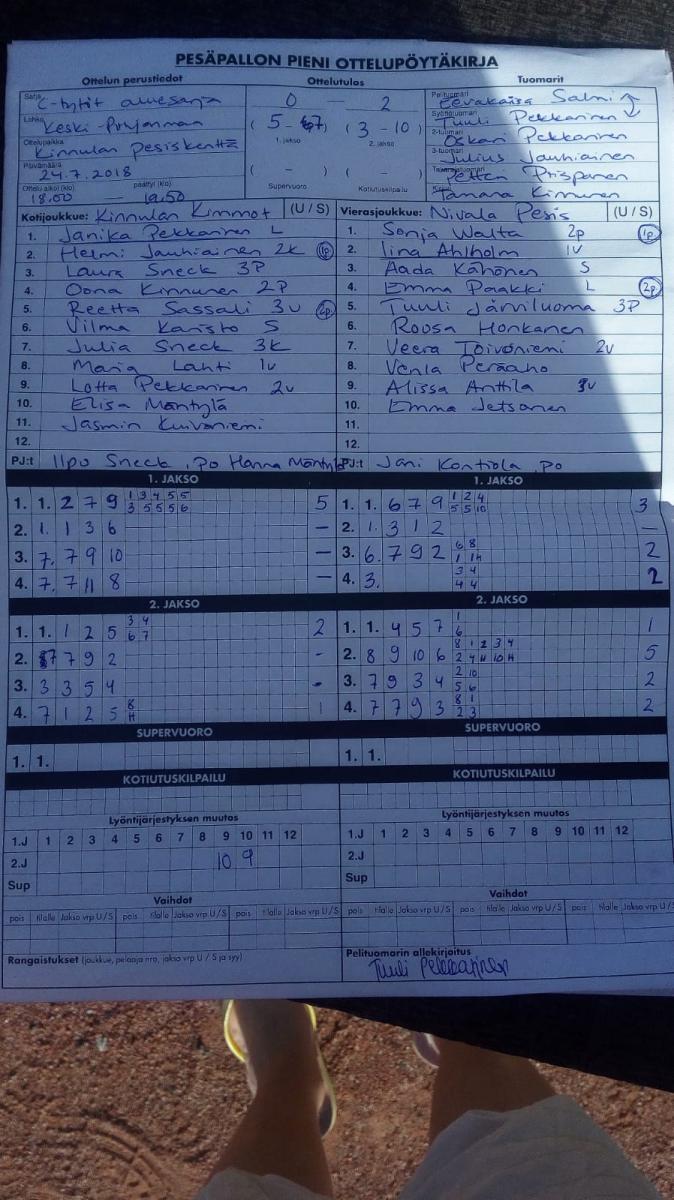 PESÄPALLON PIENI OTTELUPÖYTÄKIRJA
Ottelun perustiedot Ottelutulos Tuomarit
Sarja C-tytöt aluesarja 0 – 2 Pelituomari Eevakaisa Salmi
Lohko Keski-Pohjanmaa (5 – 7) (3 – 10) Syöttötuomari Tuuli Pekkarinen
1. jakso 2. jakso
Ottelupaikka Kinnulan Pesiskenttä 2-tuomari Oskari Pekkarinen
Päivämäärä 24.7.2018 ( – ) ( – ) 3-tuomari Julius Jauhiainen
Takarajatuomari Petteri Piispanen
Ottelu alkoi (klo) 18.00 päättyi (klo) 19.50 Supervuoro Kotiutuskilpailu Tamara Kinnunen
Kotijoukkue: Kinnulan Kimmot (U / S) Vierasjoukkue: Nivala Pesis (U / S)
1. Janika Pekkarinen L 1. Sonja Walta 2p 1p
2. Helmi Jauhiainen 2k 1p 2. Iina Ahlholm 1v
3. Laura Sneck 3P 3. Aada Kähönen S
4. Oona Kinnunen 2P 4. Emma Paakki L 2p
5. Reetta Sassali 3v 2p 5. Tuuli Järviluoma 3P
6. Vilma Kanisto S 6. Roosa Honkanen
7. Julia Sneck 3k 7. Veera Toivoniemi 2v
8. Maria Lahti 1v 8. Venla Peräaho
9. Lotta Pekkarinen 2v 9. Alissa Anttila 3v
10. Elisa Mäntylä 10. Emma Jetsonen
11. Jasmin Kuivaniemi 11.
12. 12.
PJ:t Ilpo Sneck, Po Hanna Mäntylä PJ:t Jani Kontiola, Po
1. JAKSO 1. JAKSO
1. 1. 2 7 9 1 3 4 5 5 5 1. 1. 6 7 9 1 2 4 3
3 5 5 5 6 5 5 10
2. 1. 1 3 6 – 2. 1. 3 1 2 –
3. 7. 7 9 10 – 3. 6. 7 9 2 6 8 2
1 1H
4. 7. 7 11 8 – 4. 3. 3 4 2
4 4
2. JAKSO 2. JAKSO
1. 1. 1 2 5 3 4 2 1. 1. 4 5 7 1 1
6 7 6
2. 7 7 9 2 - 2. 8 9 10 6 8 1 2 3 4 5
2 4 H 10 H
3. 3 3 5 4 - 3. 7 9 3 4 2 10 2
5 6
4. 7 1 2 5 8 1 4. 7 7 9 3 8 1 2
H 2 3
SUPERVUORO SUPERVUORO
1. 1. 1. 1.
KOTIUTUSKILPAILU KOTIUTUSKILPAILU
Lyöntijärjestyksen muutos Lyöntijärjestyksen muutos
1.J 1 2 3 4 5 6 7 8 9 10 11 12 1.J 1 2 3 4 5 6 7 8 9 10 11 12
2.J 10 9 2.J
Sup Sup
Vaihdot Vaihdot
pois tilalle Jakso vrp U / S pois tilalle Jakso vrp U / S pois tilalle Jakso vrp U / S pois tilalle Jakso vrp U / S pois tilalle Jakso vrp U / S pois tilalle Jakso vrp U / S
Rangaistukset (joukkue, pelaaja nro, jakso vrp U / S ja syy) Pelituomarin allekirjoitus
Tuuli Pekkarinen